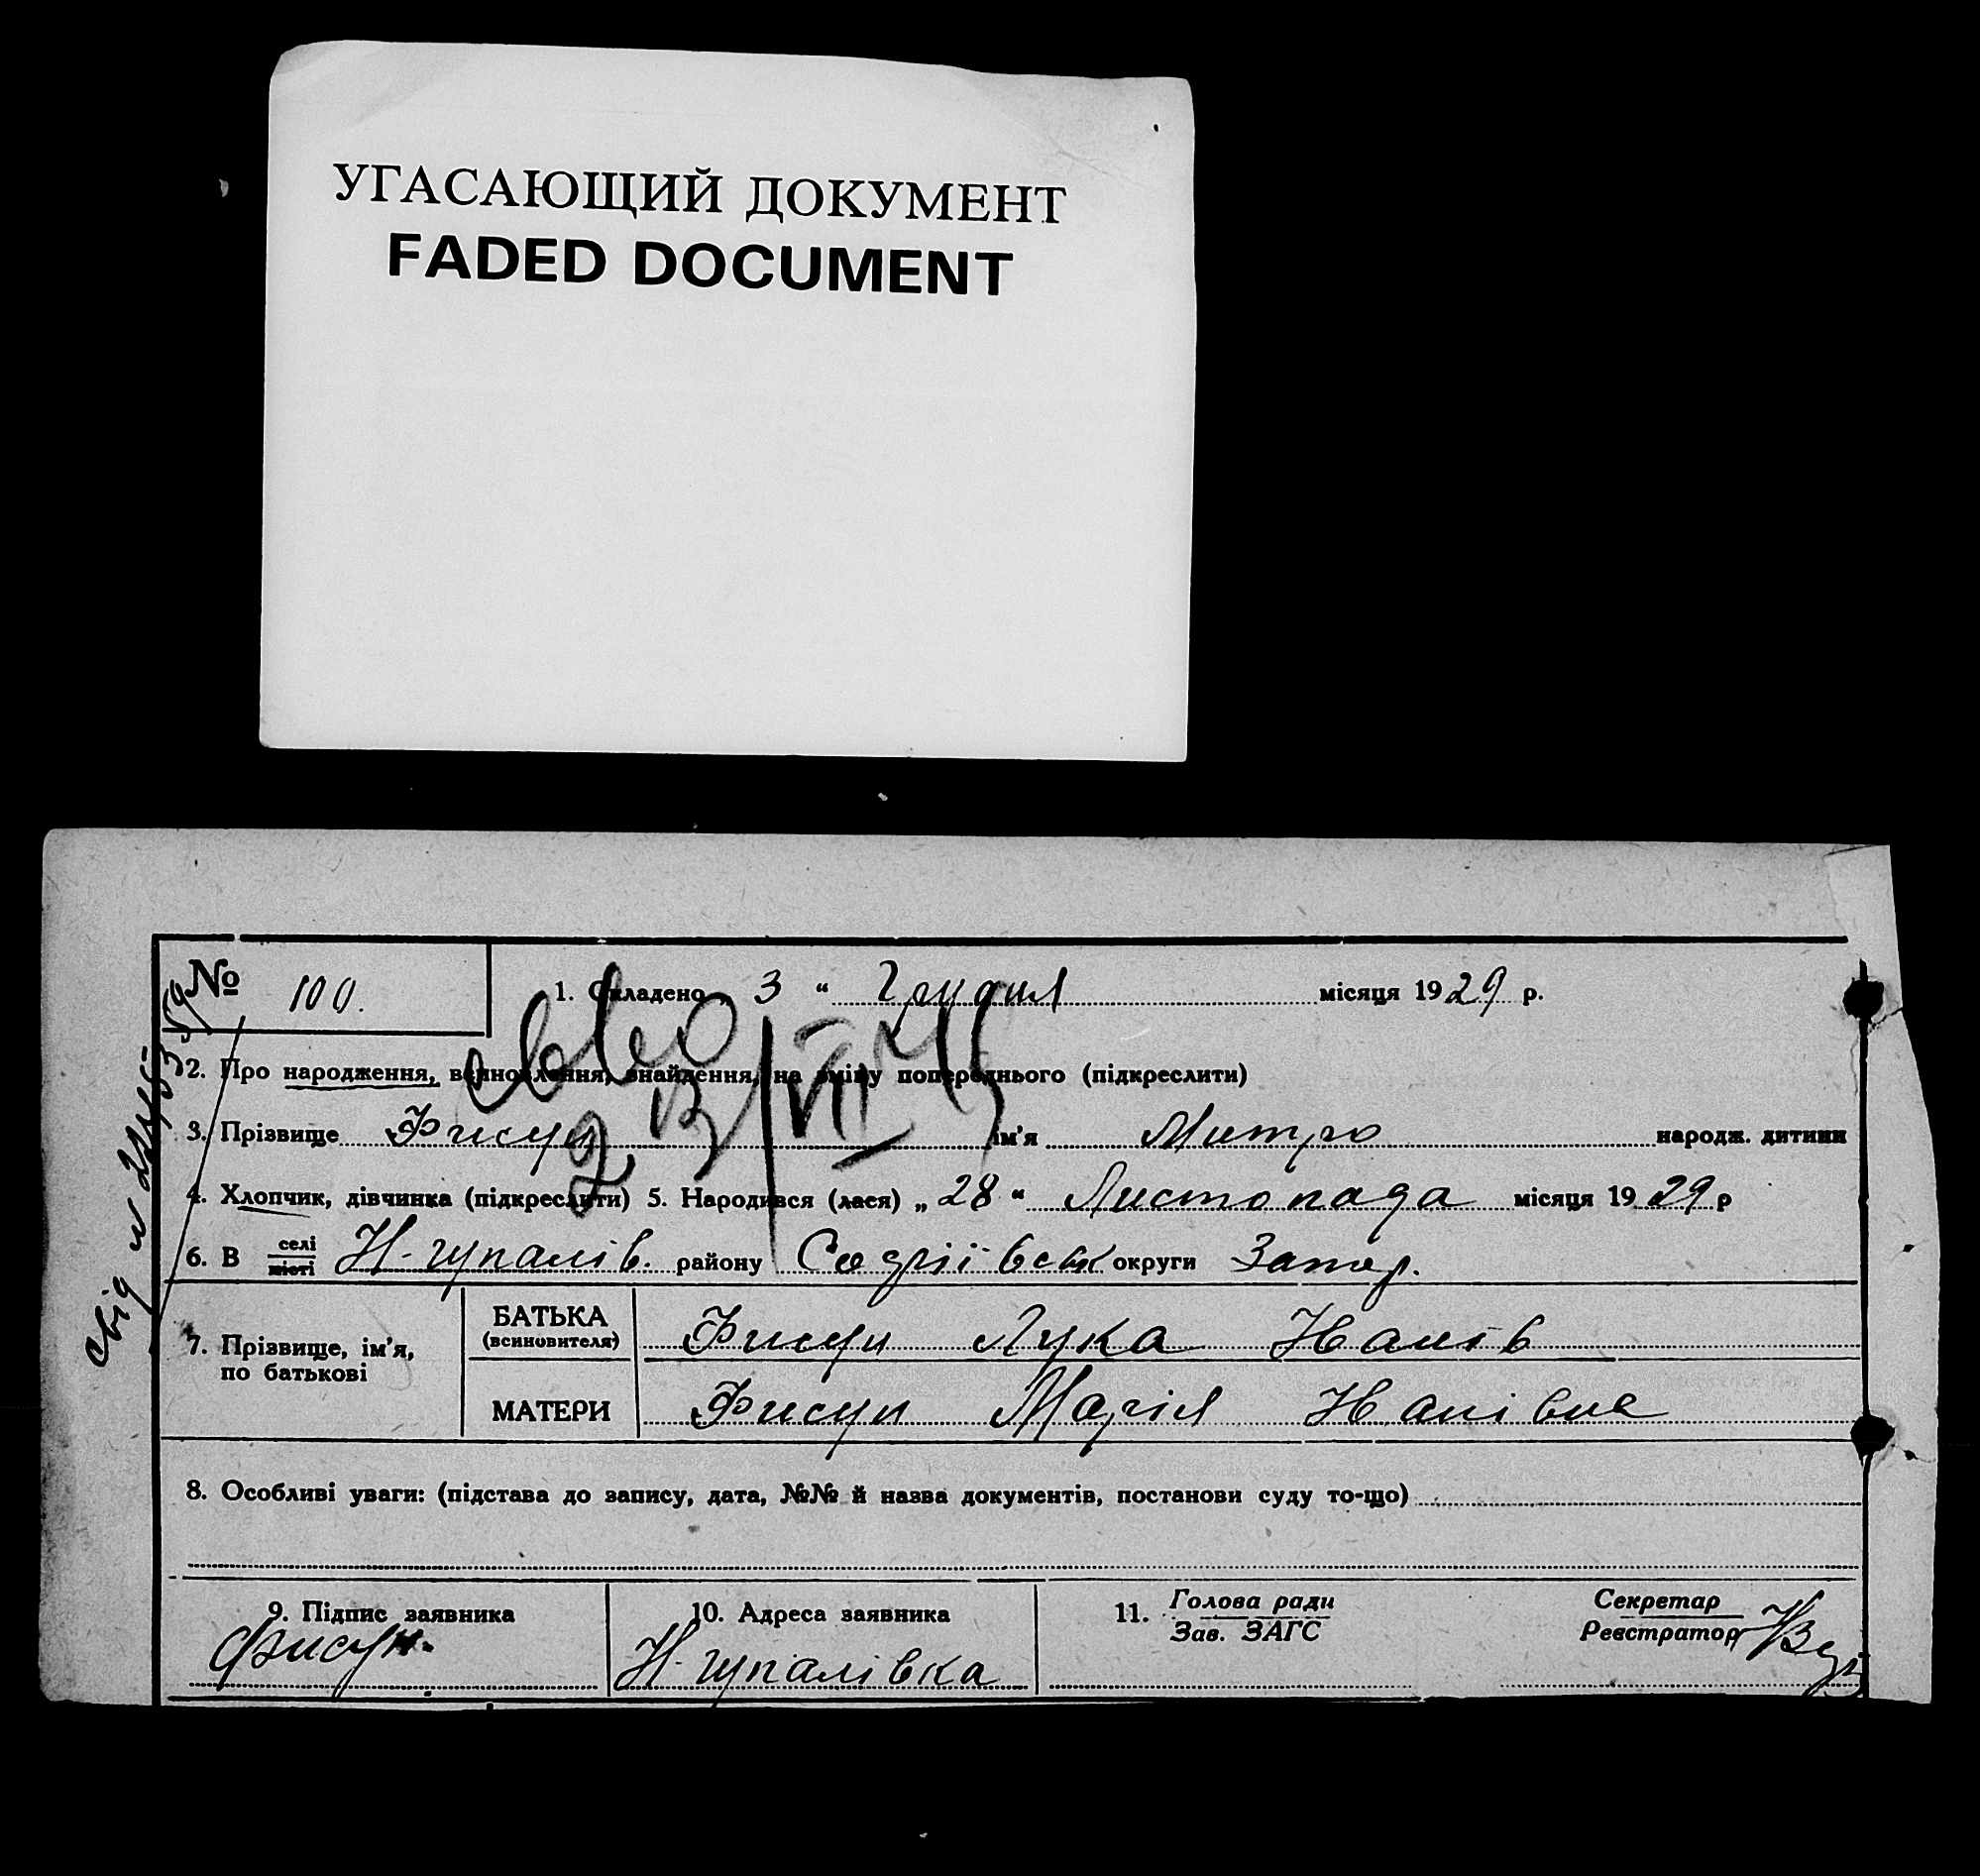 УГАСАЮЩИЙ ДОКУМЕНТ
FADED DOCUMENT
№ 100.
1. Складено „ 3 “ Грудня місяця 1929 р.
2. Про народження, всиновлення, знайдення, на зміну попереднього (підкреслити)
3. Прізвище Фисун ім'я Митро народж. дитини
4. Хлопчик, дівчинка (підкреслити) 5. Народився (лася) „ 28 “ Листопада місяця 1929 р
6. В селі місті Н-гупалів. району Софіївськ округи Запор.
7. Прізвище, ім'я, по батькові
БАТЬКА (всиновителя) Фисун Лука
МАТЕРИ Фисун Марія
8. Особливі уваги: (підстава до запису, дата, №№ й назва документів, постанови суду то-що)
9. Підпис заявника
Фисун.
10. Адреса заявника
Н-гупалівка
11. Голова ради
Зав. ЗАГС
Секретар
Реєстратор